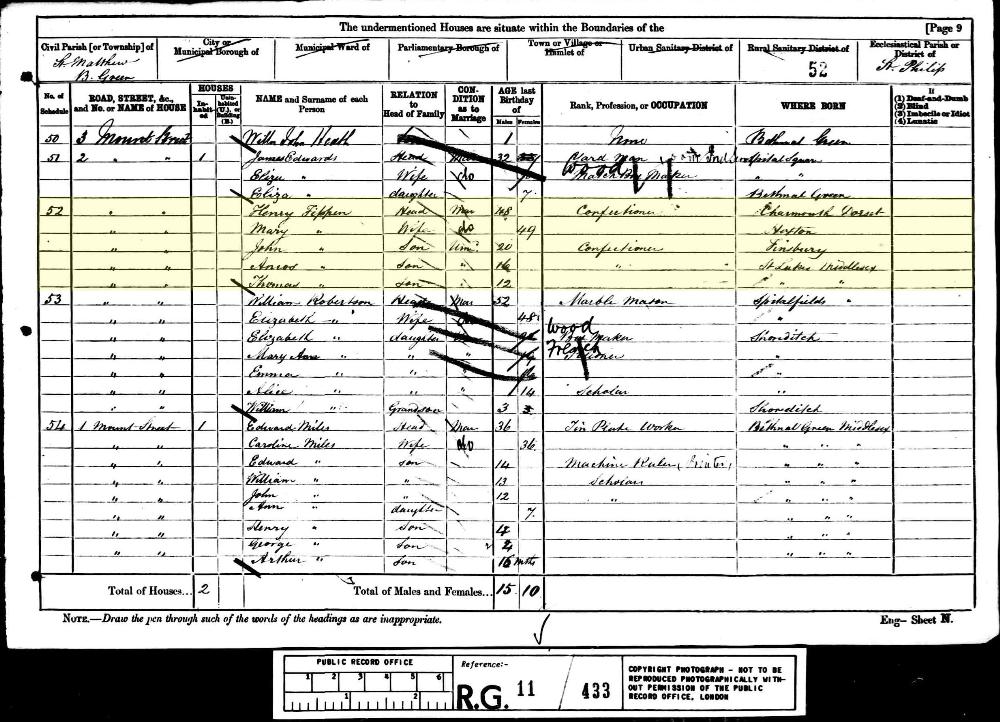 The undermentioned Houses are situate within the Boundaries of the [Page 9
Civil Parish [or Township] of City or Municipal Borough of Municipal Ward of Parliamentary Borough of Town or Village or Hamlet of Urban Sanitary District of Rural Sanitary District of Ecclesiastical Parish or District of
St. Matthew B. Green 52 St. Philip
No. of Schedule ROAD, STREET, &c., and No. or NAME of HOUSE HOUSES Inhabited Uninhabited (U.), or Building (B.) NAME and Surname of each Person RELATION to Head of Family CONDITION as to Marriage AGE last Birthday of Males Females Rank, Profession, or OCCUPATION WHERE BORN If (1) Deaf-and-Dumb (2) Blind (3) Imbecile or Idiot (4) Lunatic
50 3 Mount Street John Heath 1 None Bethnal Green
51 2 " " 1 James Edwards Head Mar 32 Yard Man Spital Square
Eliza " Wife do Match Box Maker " "
wood
Eliza " daughter 7 Bethnal Green
52 " " Henry Fippen Head Mar 48 Confectioner Charmouth Dorset
" " Mary " Wife do 49 Hoxton
" " John " Son Unm. 20 Confectioner Finsbury
" " Amos " Son " 16 " St Lukes Middlesex
" " Thomas " Son " 12 " "
53 " " William Robertson Head Mar 52 Marble Mason Spitalfields "
" " Elizabeth " Wife 48 "
wood
" " Elizabeth " daughter Box Maker Shoreditch
French
" " Mary Ann " " "
" " Emma " " " "
" " Alice " " " 14 Scholar "
" " William " Grandson 3 Shoreditch
54 1 Mount Street 1 Edward Miles Head Mar 36 Tin Plate Worker Bethnal Green Middlesex
" " Caroline Miles Wife do 36 " " "
" " Edward " son 14 Machine Ruler (Printer) " " "
" " William " " 13 Scholar " " "
" " John " " 12 " " " "
" " Ann " daughter 7 " " "
" " Henry " Son 4 " " "
" " George " Son 2 " " "
" " Arthur " Son 16 mths
Total of Houses... 2 Total of Males and Females... 15 10
NOTE.—Draw the pen through such of the words of the headings as are inappropriate. Eng— Sheet N.
PUBLIC RECORD OFFICE
1 2 3 4 5 6
1 2
Reference:-
R.G. 11 / 433
COPYRIGHT PHOTOGRAPH - NOT TO BE REPRODUCED PHOTOGRAPHICALLY WITHOUT PERMISSION OF THE PUBLIC RECORD OFFICE, LONDON